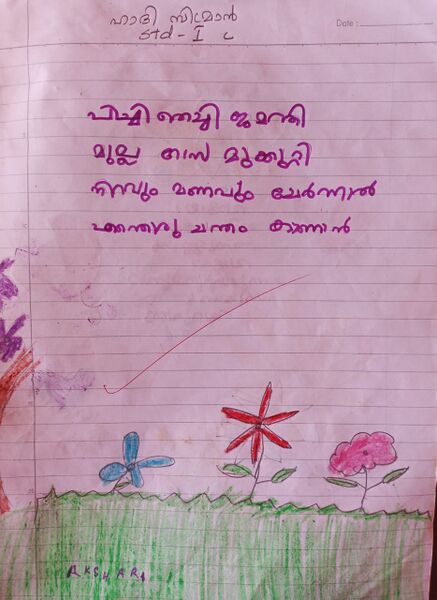 ഹാദി സിമാൻ
Std - I C
Date :
പിച്ചി തെച്ചി ജമന്തി
മുല്ല താമര മുക്കുറ്റി
നിറവും മണവും ചേർന്നാൽ
എന്തൊരു ചന്തം കാണാൻ
AKSHARA